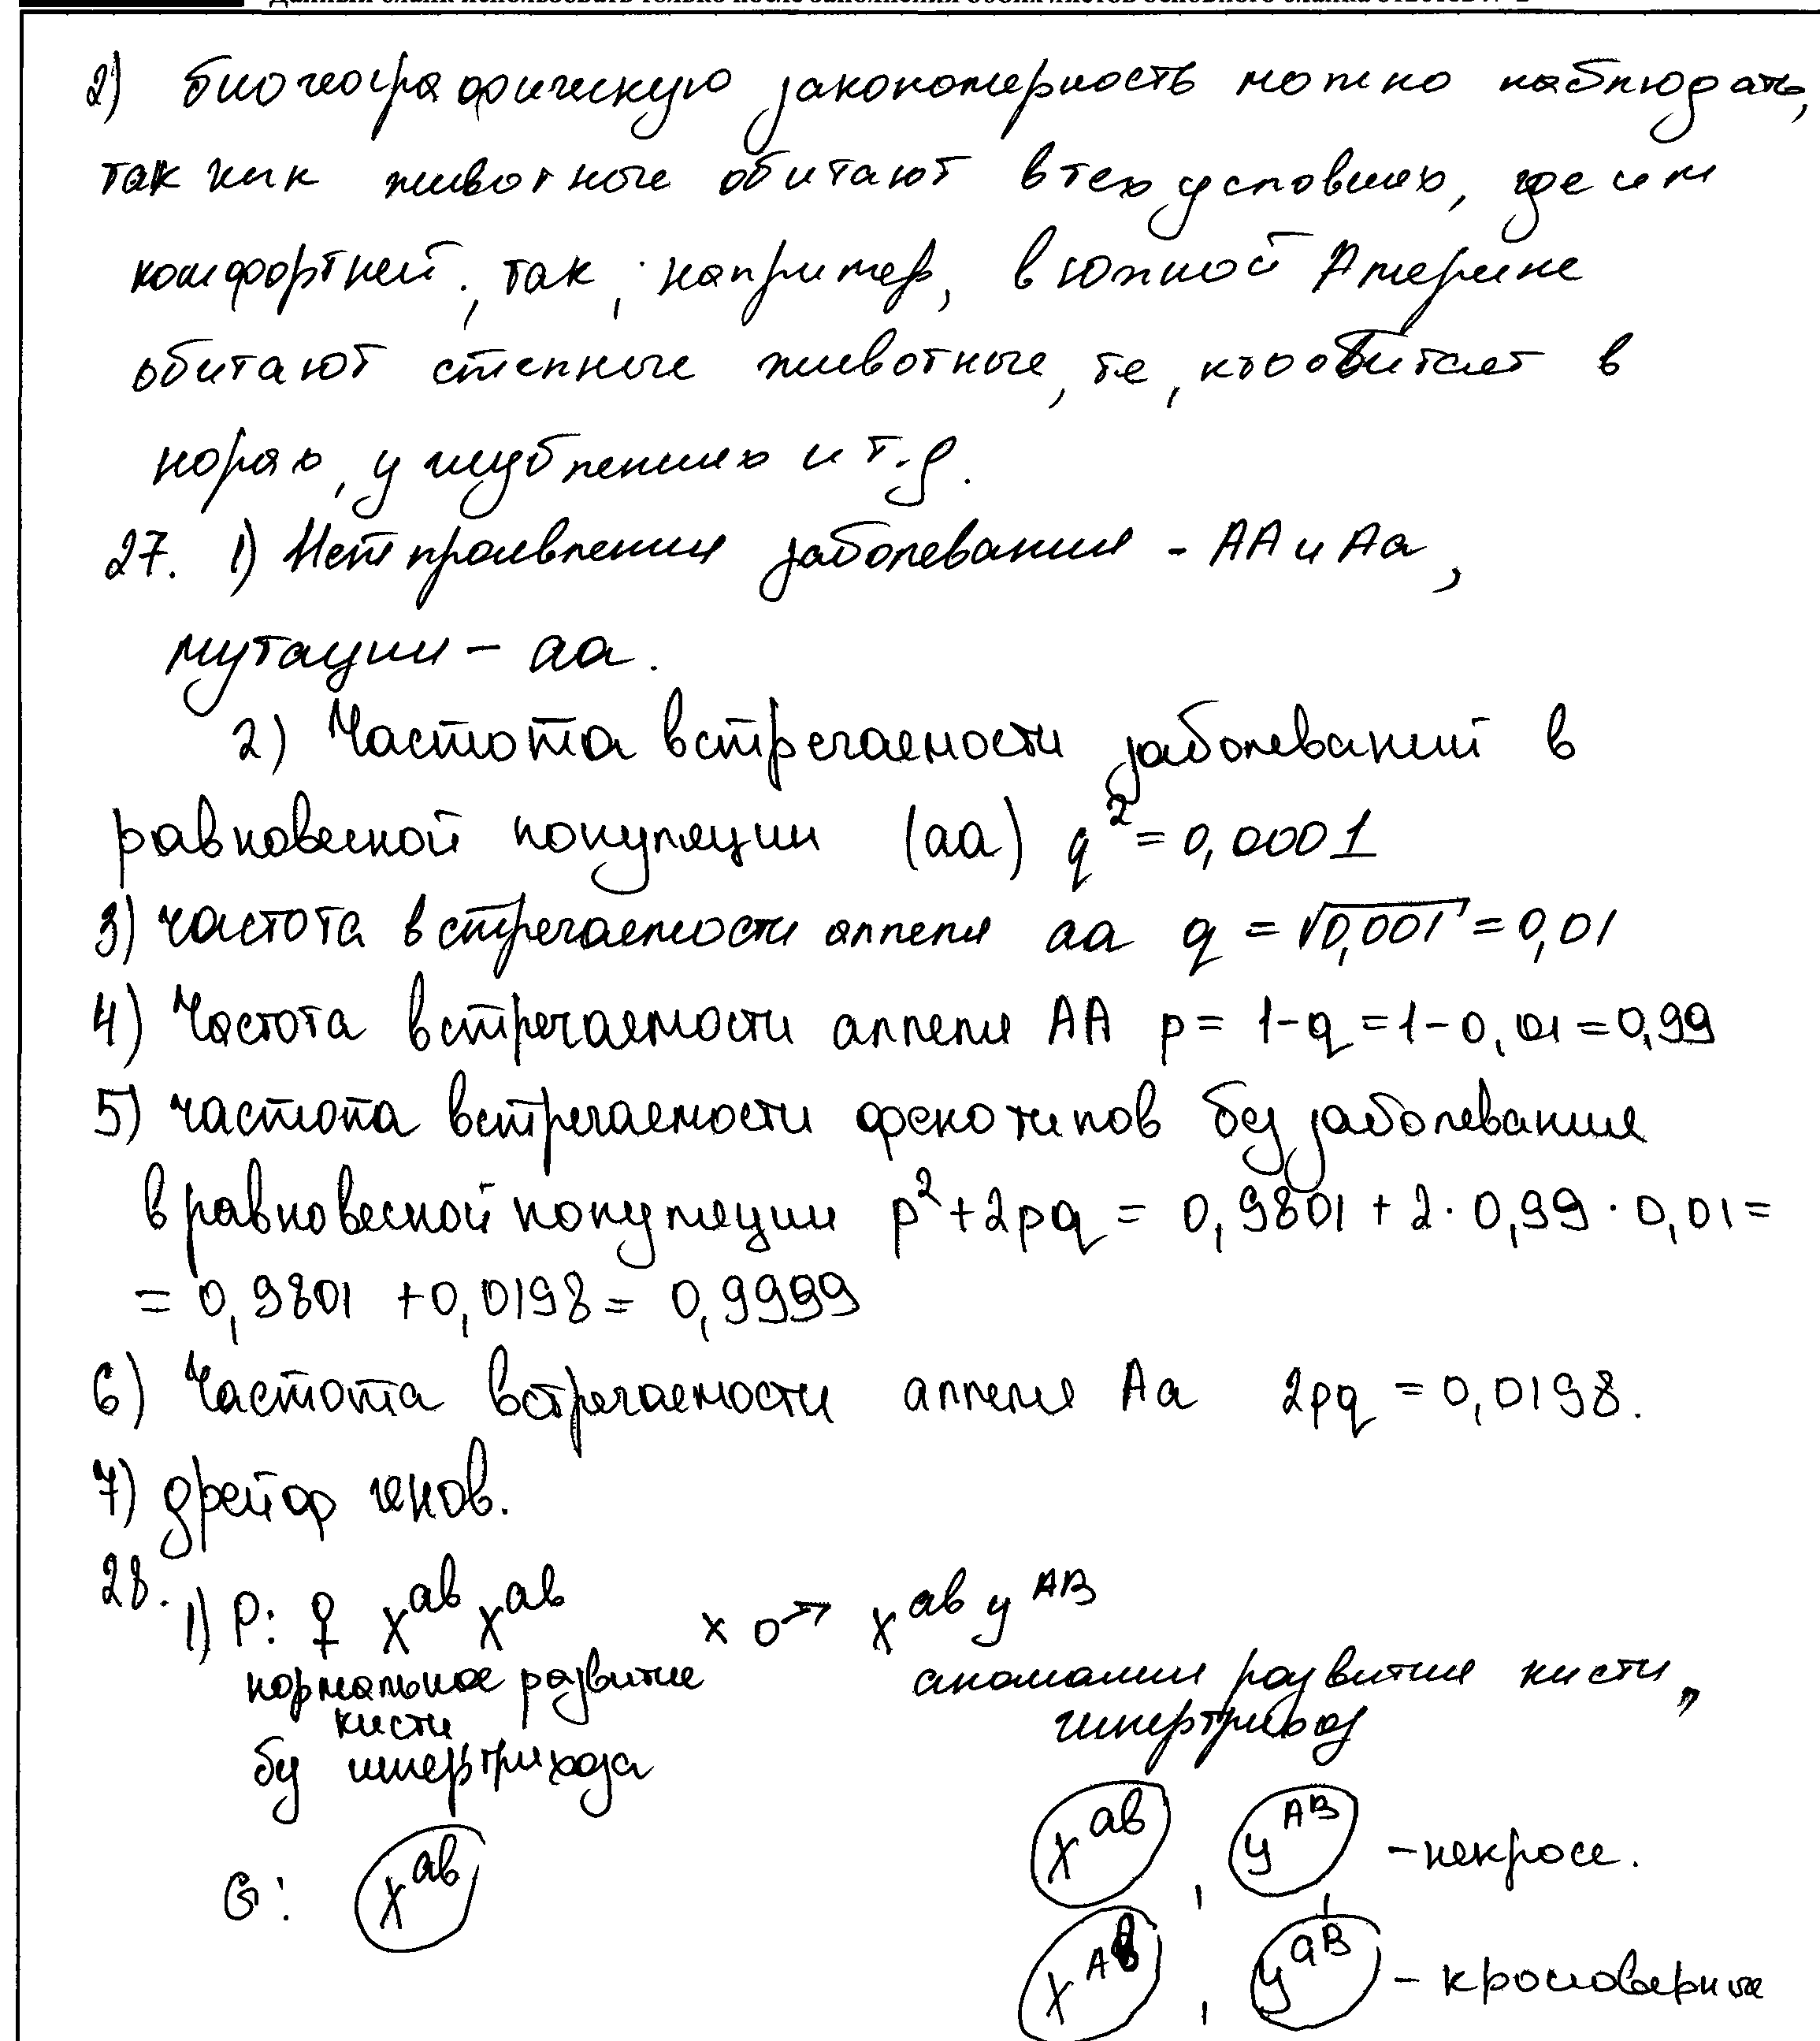 Данный бланк использовать только после заполнения обоих листов основного бланка ответов № 2
2) биогеографическую закономерность можно наблюдать,
так как животные обитают в тех условиях, где им
комфортней, так, например, в южной Америке
обитают степные животные, те, кто обитает в
норах, углублениях и т.д.
27. 1) Нет проявления заболевания - AA и Aa,
мутации - aa.
2) Частота встречаемости заболеваний в
равновесной популяции (aa) q² = 0,0001
3) частота встречаемости аллеля aa q = √0,001 = 0,01
4) Частота встречаемости аллеля AA p = 1-q = 1-0,01 = 0,99
5) частота встречаемости фенотипов без заболевания
в равновесной популяции p²+2pq = 0,9801 + 2·0,99·0,01 =
= 0,9801 + 0,0198 = 0,9999
6) Частота встречаемости аллеля Aa 2pq = 0,0198.
7) дрейф генов.
28. 1) P: ♀ X^ab X^ab x ♂ X^ab y^AB
нормальное развитие аномалии развития кисти,
кисти гипертрихоз
без гипертрихоза
G: X^ab X^ab , y^AB - некросс.
, y^aB - кроссоверные